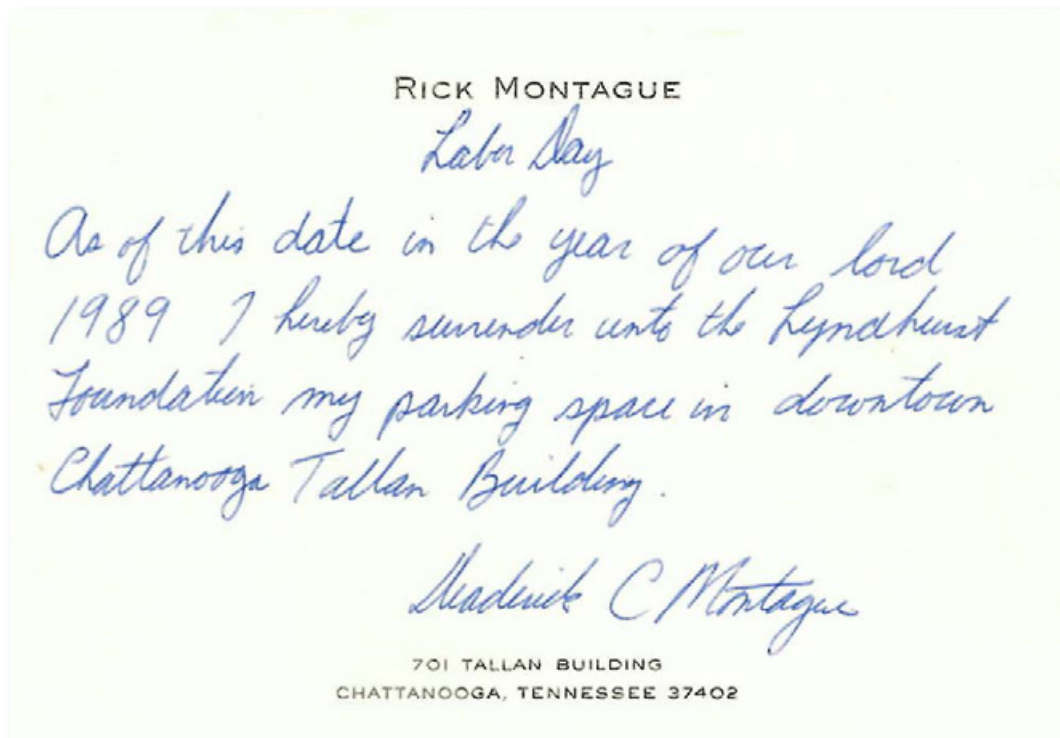 RICK MONTAGUE
Labor Day
As of this date in the year of our lord
1989 I hereby surrender unto the Lyndhurst
Foundation my parking space in downtown
Chattanooga Tallan Building.
Deaderick C Montague
701 TALLAN BUILDING
CHATTANOOGA, TENNESSEE 37402